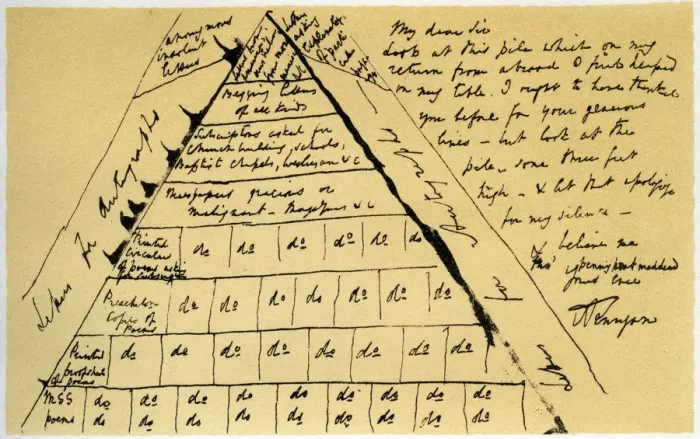 anonymous
insolent
letters
Letters for Autographs
Letters for Autographs
Begging letters
of all kinds
Subscriptions asked for
Church building, schools,
Baptist Chapels, Wesleyan &c
Newspapers gracious or
malignant - Magazines &c
Printed
circulars
of poems asking
for subscription
do do do do do do
Presentation
Copies of
Poems
do do do do do do do
Printed
proof sheets
of poems
do do do do do do do do
MSS do do do do do do do do do
poems do do do do do do do do do
My dear Sir
Look at this pile which on my
return from abroad I find heaped
on my table. I ought to have thanked
you before for your generous
lines - but look at the
pile - some three feet
high - & let that apologize
for my silence -
& believe me
ATennyson